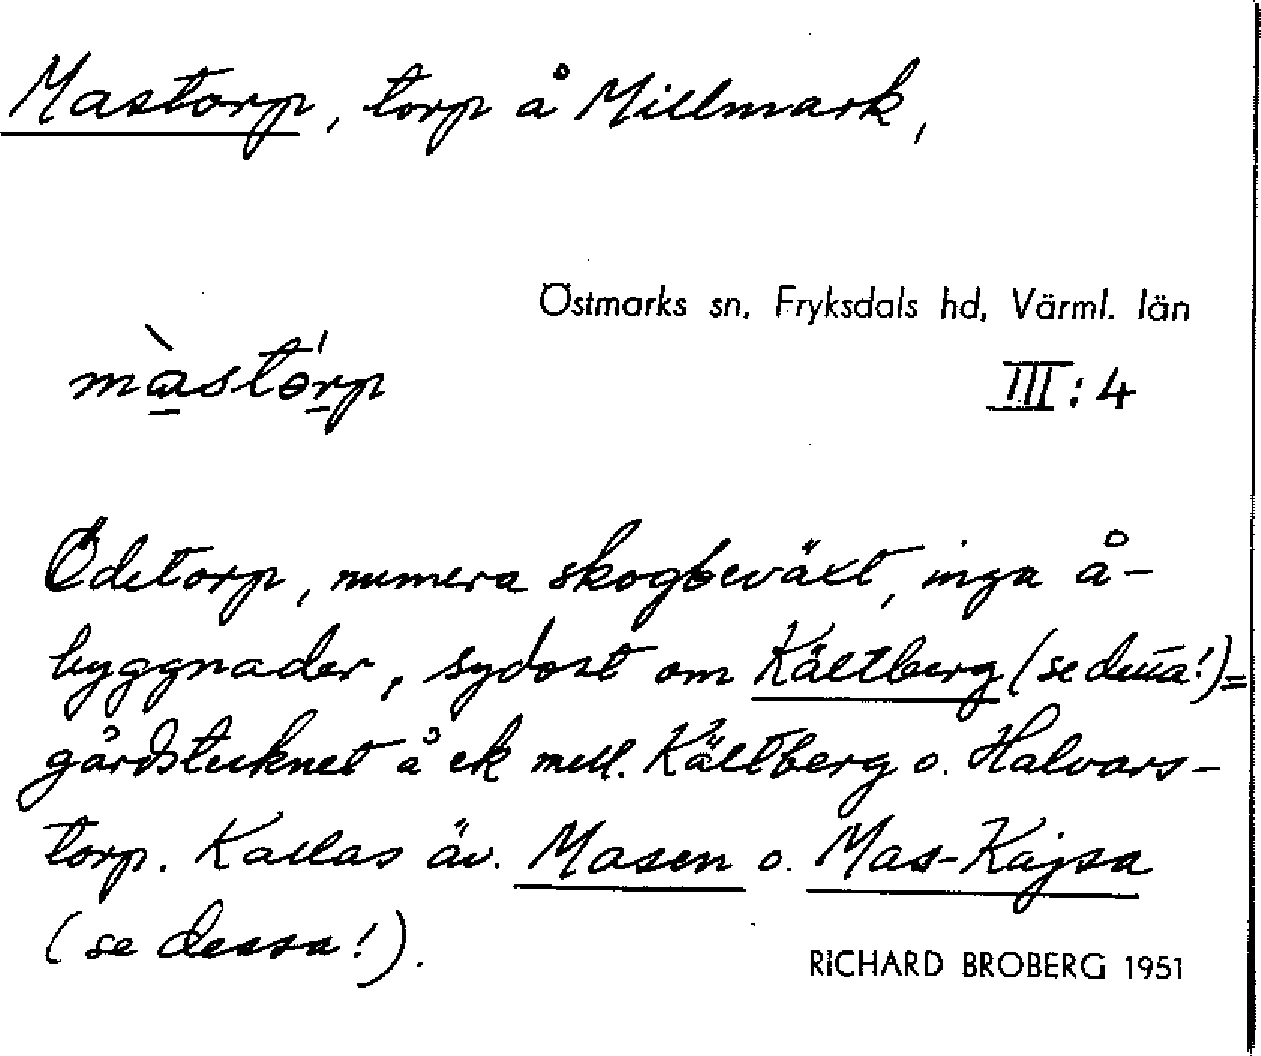 Mastorp, torp å Millmark,
Östmarks sn, Fryksdals hd, Värml. län
màstórp
III:4
Ödetorp, numera skogbeväxt, inga å-
byggnader, sydost om Kältberg (se denna!)=
gårdstecknet å ek mell. Kältberg o. Halvars-
torp. Kallas äv. Masen o. Mas-Kajsa
(se dessa!).
RICHARD BROBERG 1951